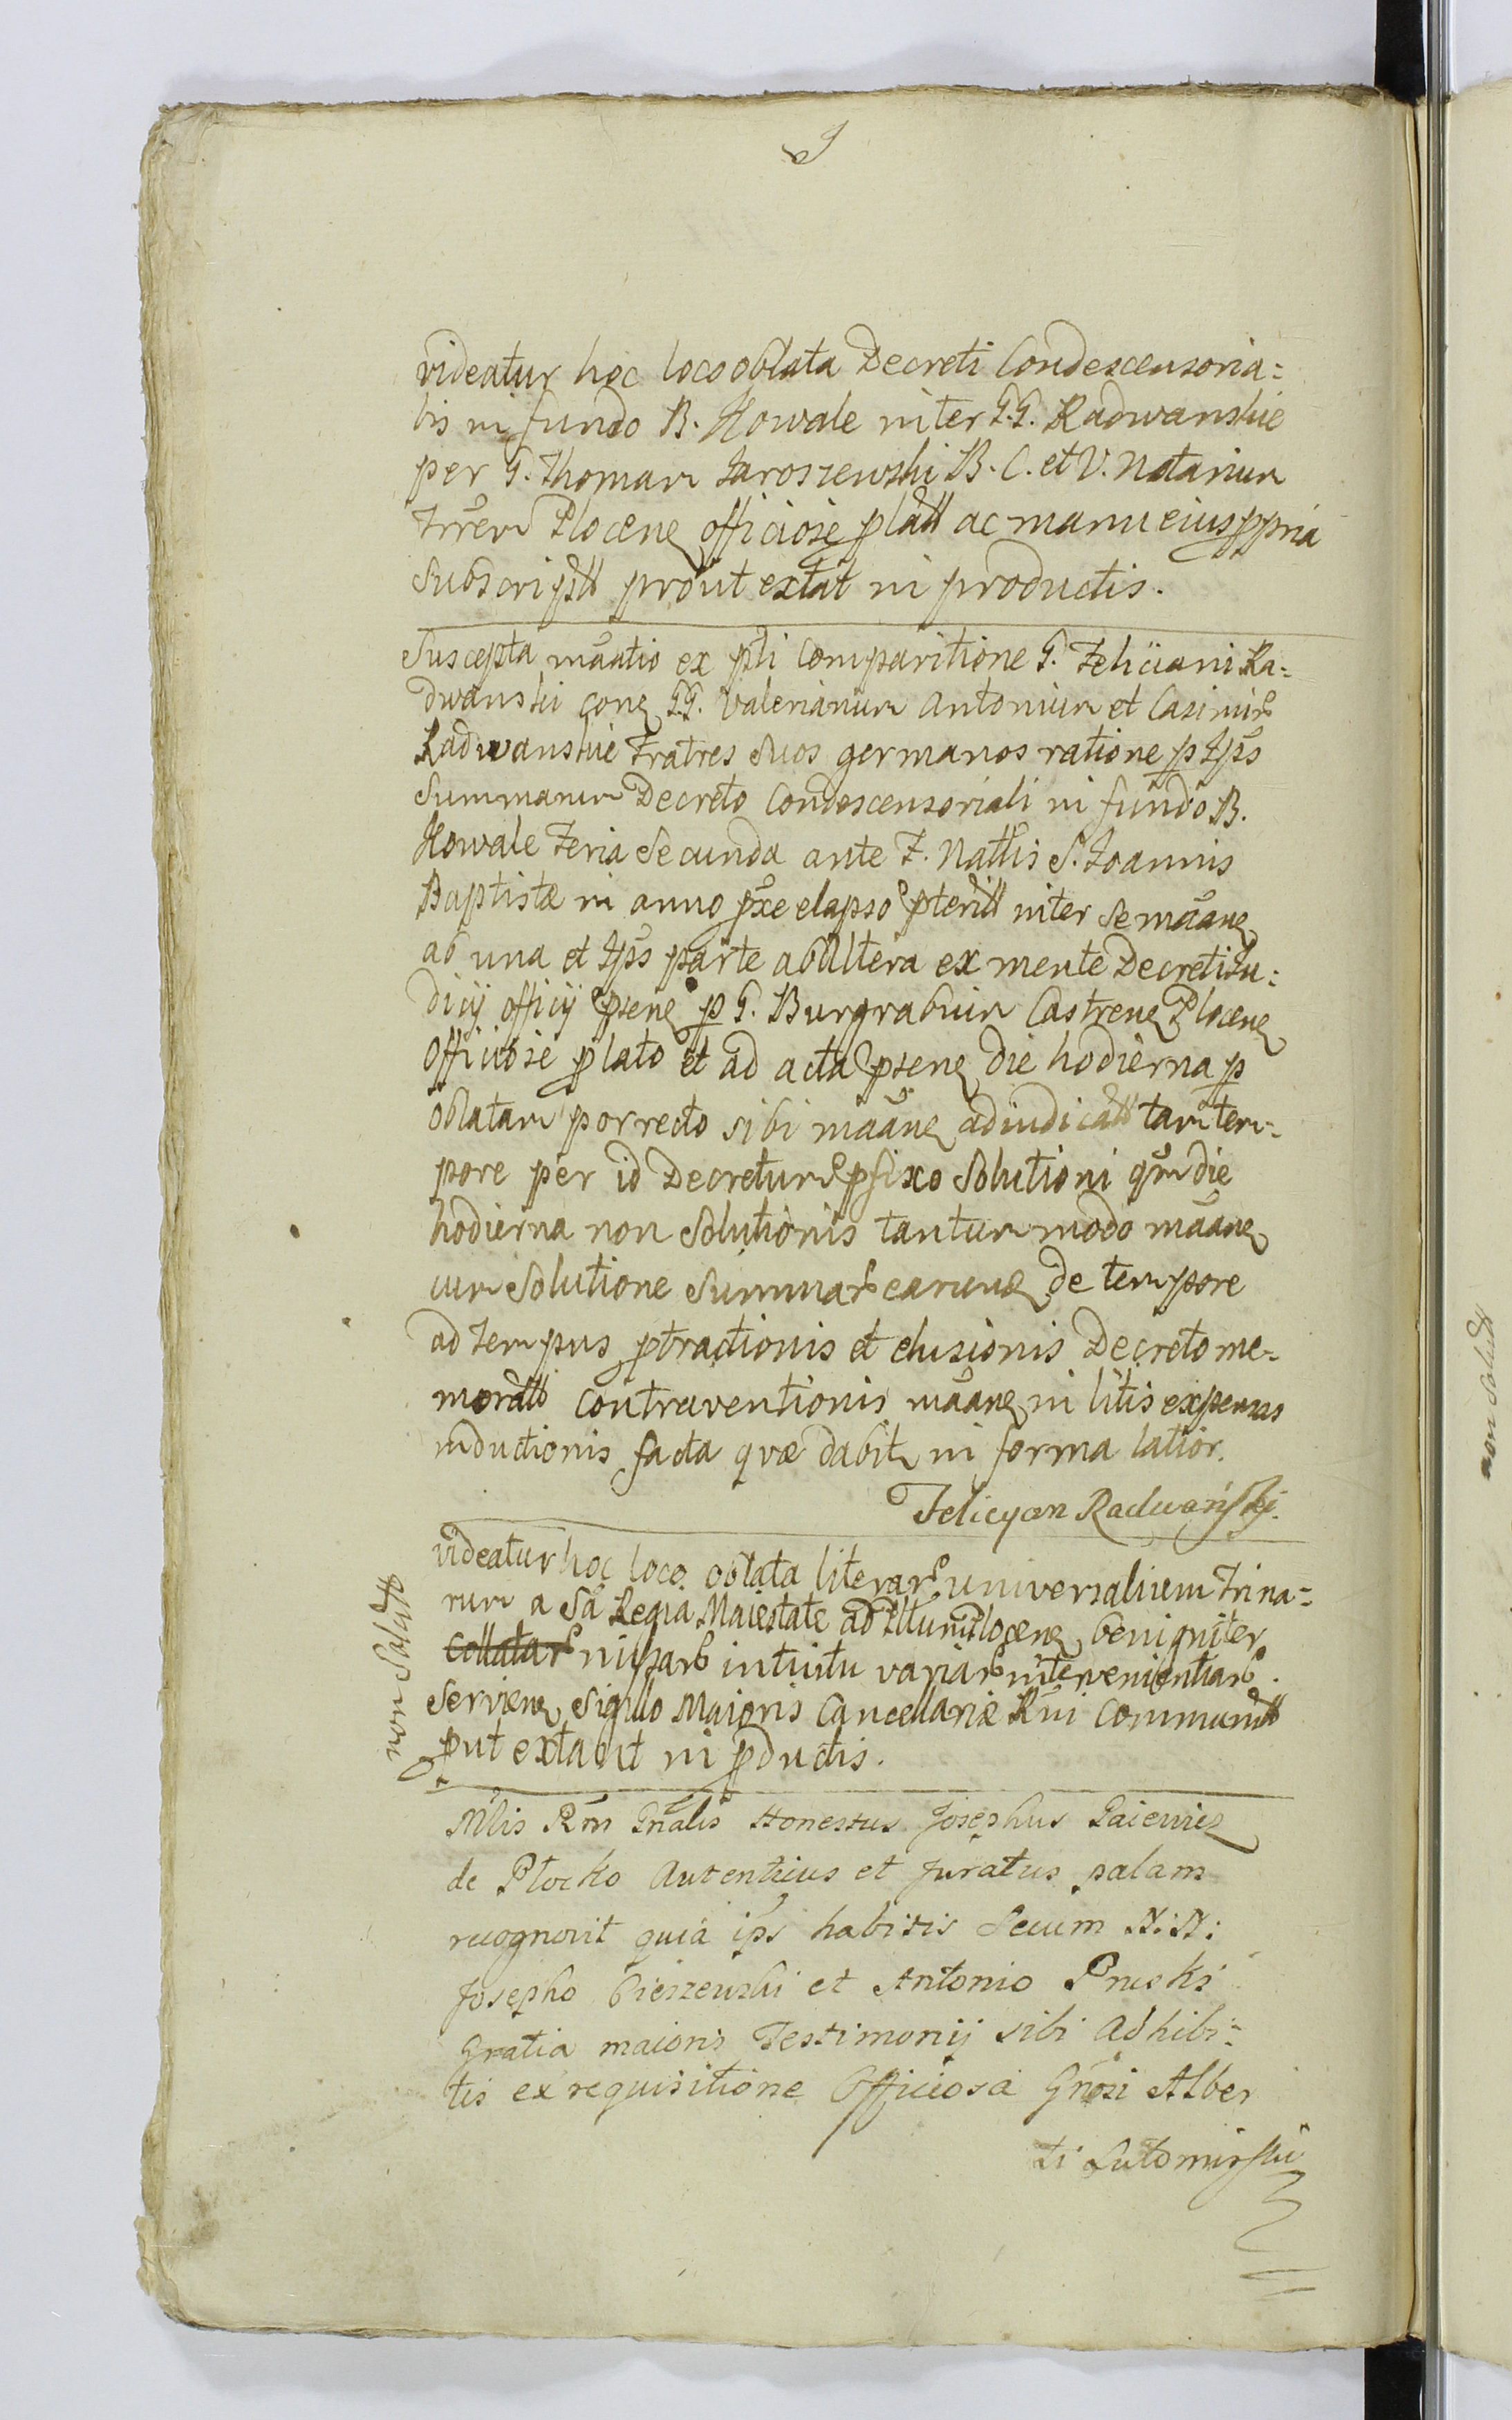 videatur hoc loco oblata Decreti Condescensoria=
lis in fundo B. Kowale inter G.G. Radwanskie
per G. Thomam Jaroszewski B. C. et V. Notarium
Trrem Plocen officiose plati ac manu eius ppria
subscripti prout extat in productis.
Suscepta mãatio ex pti Comparitione G. Feliciani Ra=
dwanski con G.G. Valerianum Antonium et Casimir
Radwanskie Fratres suos germanos ratione p Ips
Summarum Decreto Condescensoriali in fundo B.
Kowale Feria Secunda ante F. Nattis S. Joannis
Baptistæ in anno pxe elapso pteriti inter se mãan
ab una et Ips parte ab altera ex mente Decreti Iu=
dicij officij psen p G. Burgrabium Castren Plocen
Officiose plato et ad acta psen die hodierna p
oblatam porrecto sibi mãan adiudicati tam tem=
pore per id Decretum pfixo Solutioni qm die
hodierna non Solutionis tantum modo mãan
cum Solutione Summar earund de tempore
ad tempus ptractionis et elusionis Decreto me=
morati contraventionis mãan in litis expensas
inductionis facta quæ dabit in forma latior.
Felicyan Radwański.
videatur hoc loco oblata literar universalium Trina=
rum a Sa Regia Maiestate ad Pttum Plocen benigniter
Collatar missar intuitu variar intervenientiar
Servien Sigillo Maioris Cancellariæ Rni communiti
put extant in pductis.
non Solut
Mlis Rni Gnalis Honestus Josephus Gaiewicz
de Plocko Autenticus et Juratus palam
recognovit quia ips habitis Secum N: N:
Josepho Cieszewski et Antonio Pruski
Gratia maioris Testimonij sibi Adhibi=
tis ex requisitione Officiosa Gnosi Alber
ti Lutomirski
non Solut